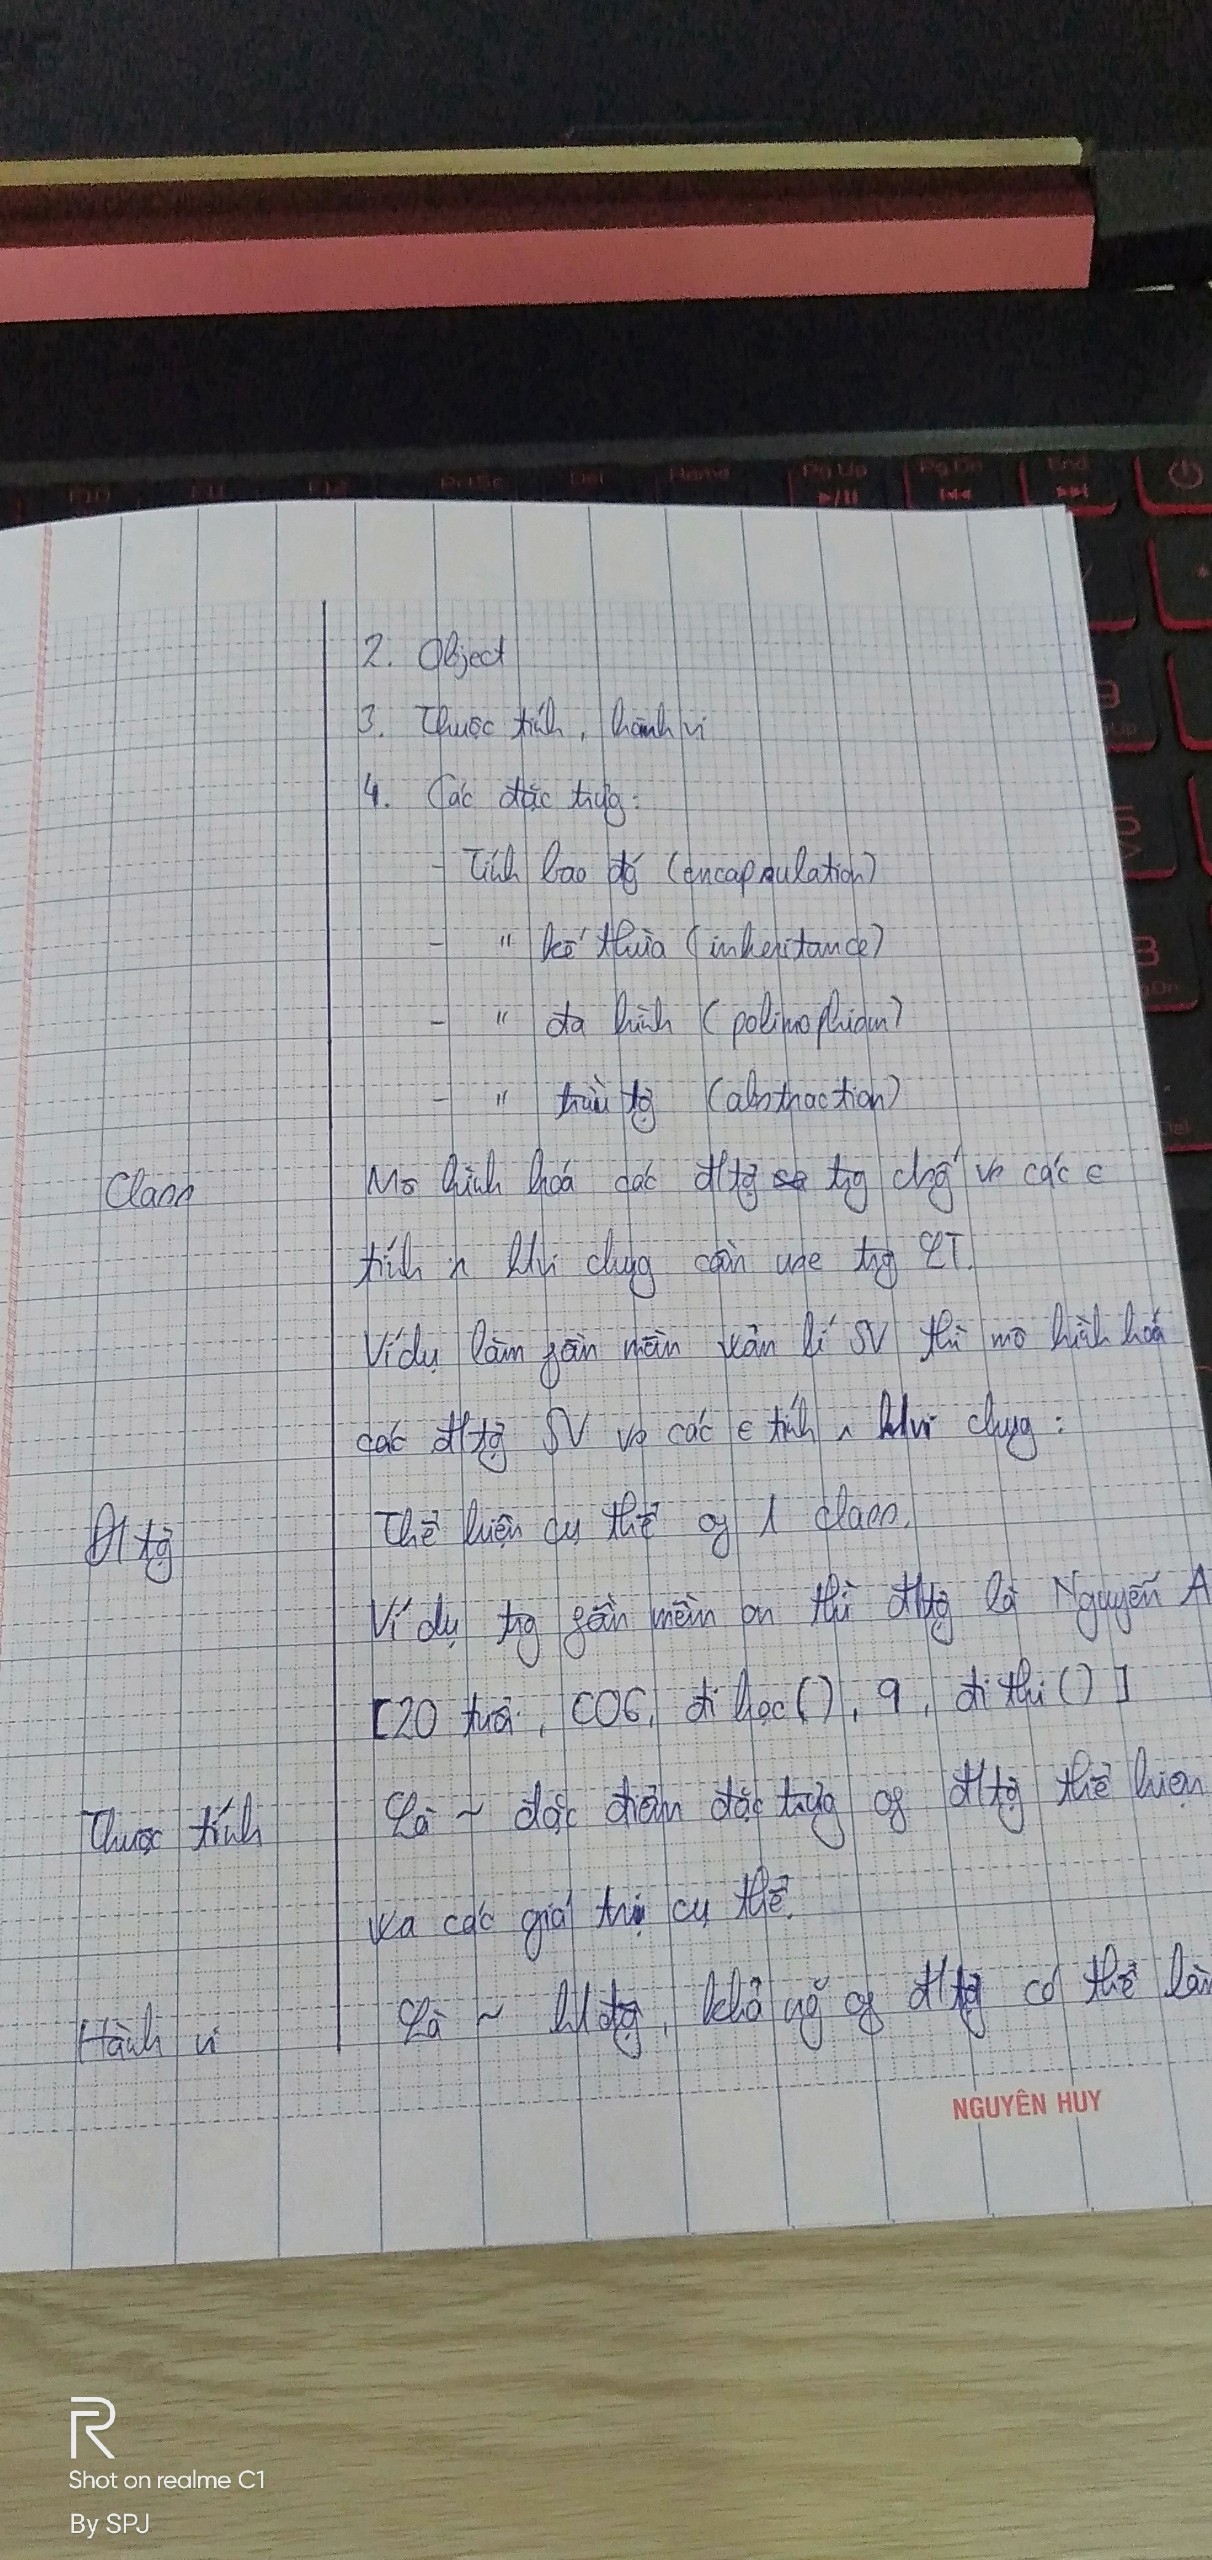 F10 F11 F12 PrtSc Del Home Pg Up Pg Dn End
2. Object
3. Thuộc tính, hành vi
4. Các đặc trưg:
- Tính bao đg' (encapsulation)
- " kế thừa (inheritance)
- " đa hình (polimophism)
- " trừu tg (abstraction)
Class
Mô hình hoá các đ/tg trg chg' vs các e
tính n khi chug cần use trg LT.
Ví dụ làm fần mềm wản lí SV thì mô hình hoá
các đ/tg SV vs các e tính chug:
Đ/tg
Thể hiện cụ thể og 1 class.
Ví dụ trg fần mềm on thì đ/tg là Nguyễn A
[20 tuổi, COG, đi học(), 9, đi thi()]
Thuộc tính
Là ~ đặc điểm đặc trưg og đ/tg thể hiện
wa các giá trị cụ thể.
Hành vi
Là ~ h/đg, khả ng og đ/tg có thể làm
NGUYÊN HUY
R
Shot on realme C1
By SPJ